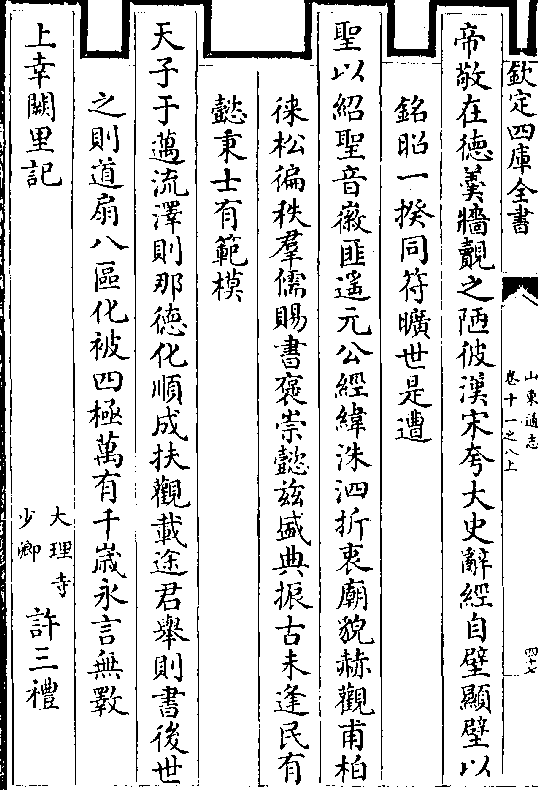 欽定四庫全書
山東通志
卷十一之八上
四十七
帝敬在德羹牆覿之陋彼漢宋夸大史辭經自壁顯壁以
銘昭一揆同符曠世是遭
聖以紹聖音徽匪遥元公經緯洙泗折衷廟貌赫觀甫柏
徠松徧秩羣儒賜書褒崇懿兹盛典振古未逢民有
懿秉士有範模
天子于邁流澤則那德化順成扶觀載途君舉則書後世
之則道扇八區化被四極萬有千嵗永言無斁
上幸闕里記
大理寺
少卿
許三禮